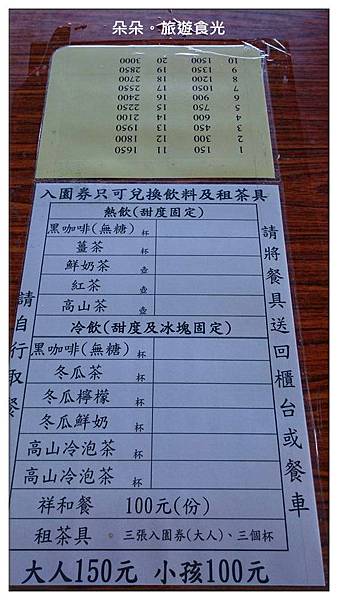 朵朵。旅遊食光
1 150 11 1650
2 300 12 1800
3 450 13 1950
4 600 14 2100
5 750 15 2250
6 900 16 2400
7 1050 17 2550
8 1200 18 2700
9 1350 19 2850
10 1500 20 3000
入園券只可兌換飲料及租茶具
熱飲(甜度固定)
黑咖啡(無糖) 杯
薑茶 杯
鮮奶茶 壺
紅茶 壺
高山茶 壺
冷飲(甜度及冰塊固定)
黑咖啡(無糖) 杯
冬瓜茶 杯
冬瓜檸檬 杯
冬瓜鮮奶 杯
高山冷泡茶 杯
高山冷泡茶 杯
祥和餐 100元(份)
租茶具 。三張入園券(大人)、三個杯
大人150元 小孩100元
請自行取餐
請將餐具送回櫃台或餐車